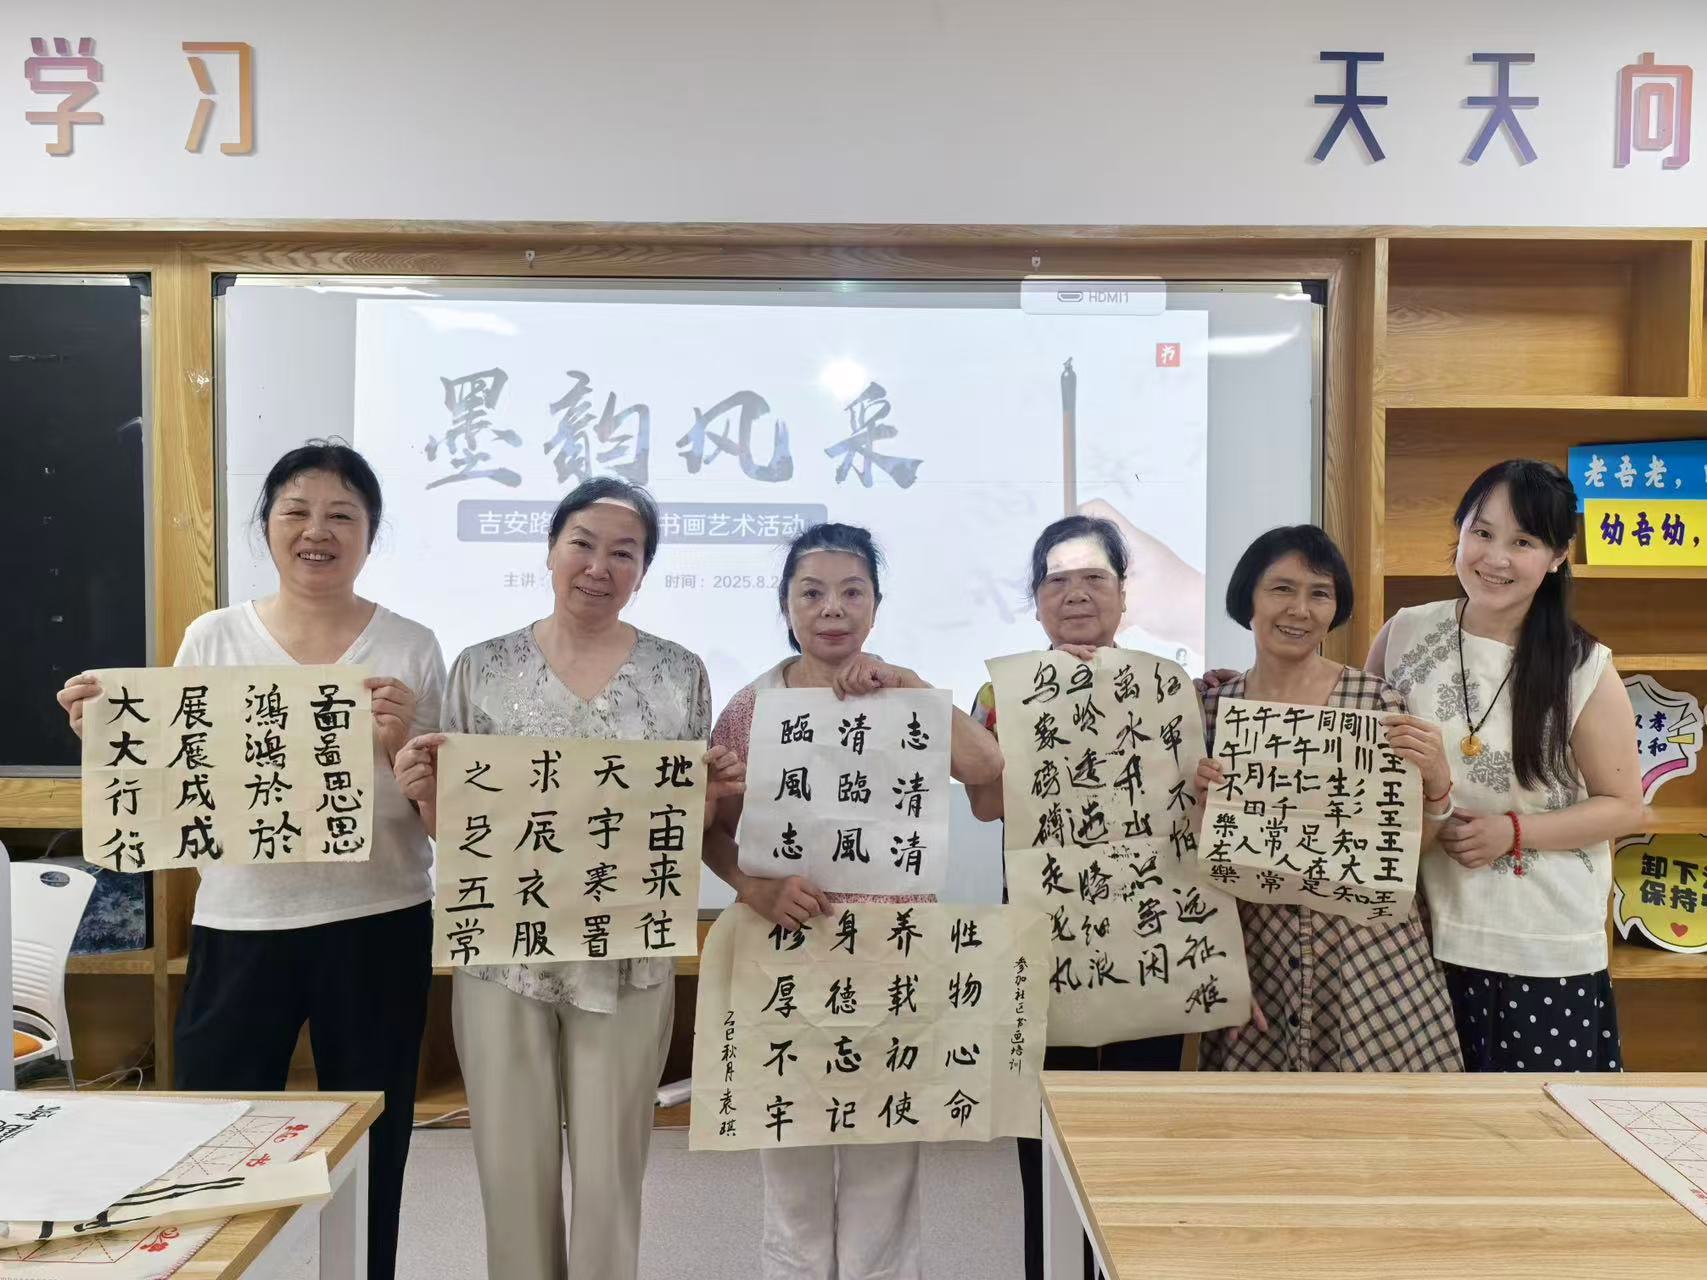 学习
天天向
HDMI1
墨韵风采
吉安路
书画艺术活动
主讲：
时间：2025.8.2
老吾老，
幼吾幼，
孝
和
卸下
保持
啚啚思思
鴻鴻於於
展展成成
大大行行
地宙来往
天宇寒署
求辰衣服
之足五常
志清清
清臨風
臨風志
参加社区书画培训
性物心命
养载初使
身德忘记
修厚不牢
乙巳秋月袁琪
红军不怕远征难
萬水千山只等闲
五岭逶迤腾细浪
乌蒙磅礴走泥丸
王王王王王王
川川彡彡知大知
同同川生年足在足
午午仁仁千常人常
午午川月田人
不樂在樂